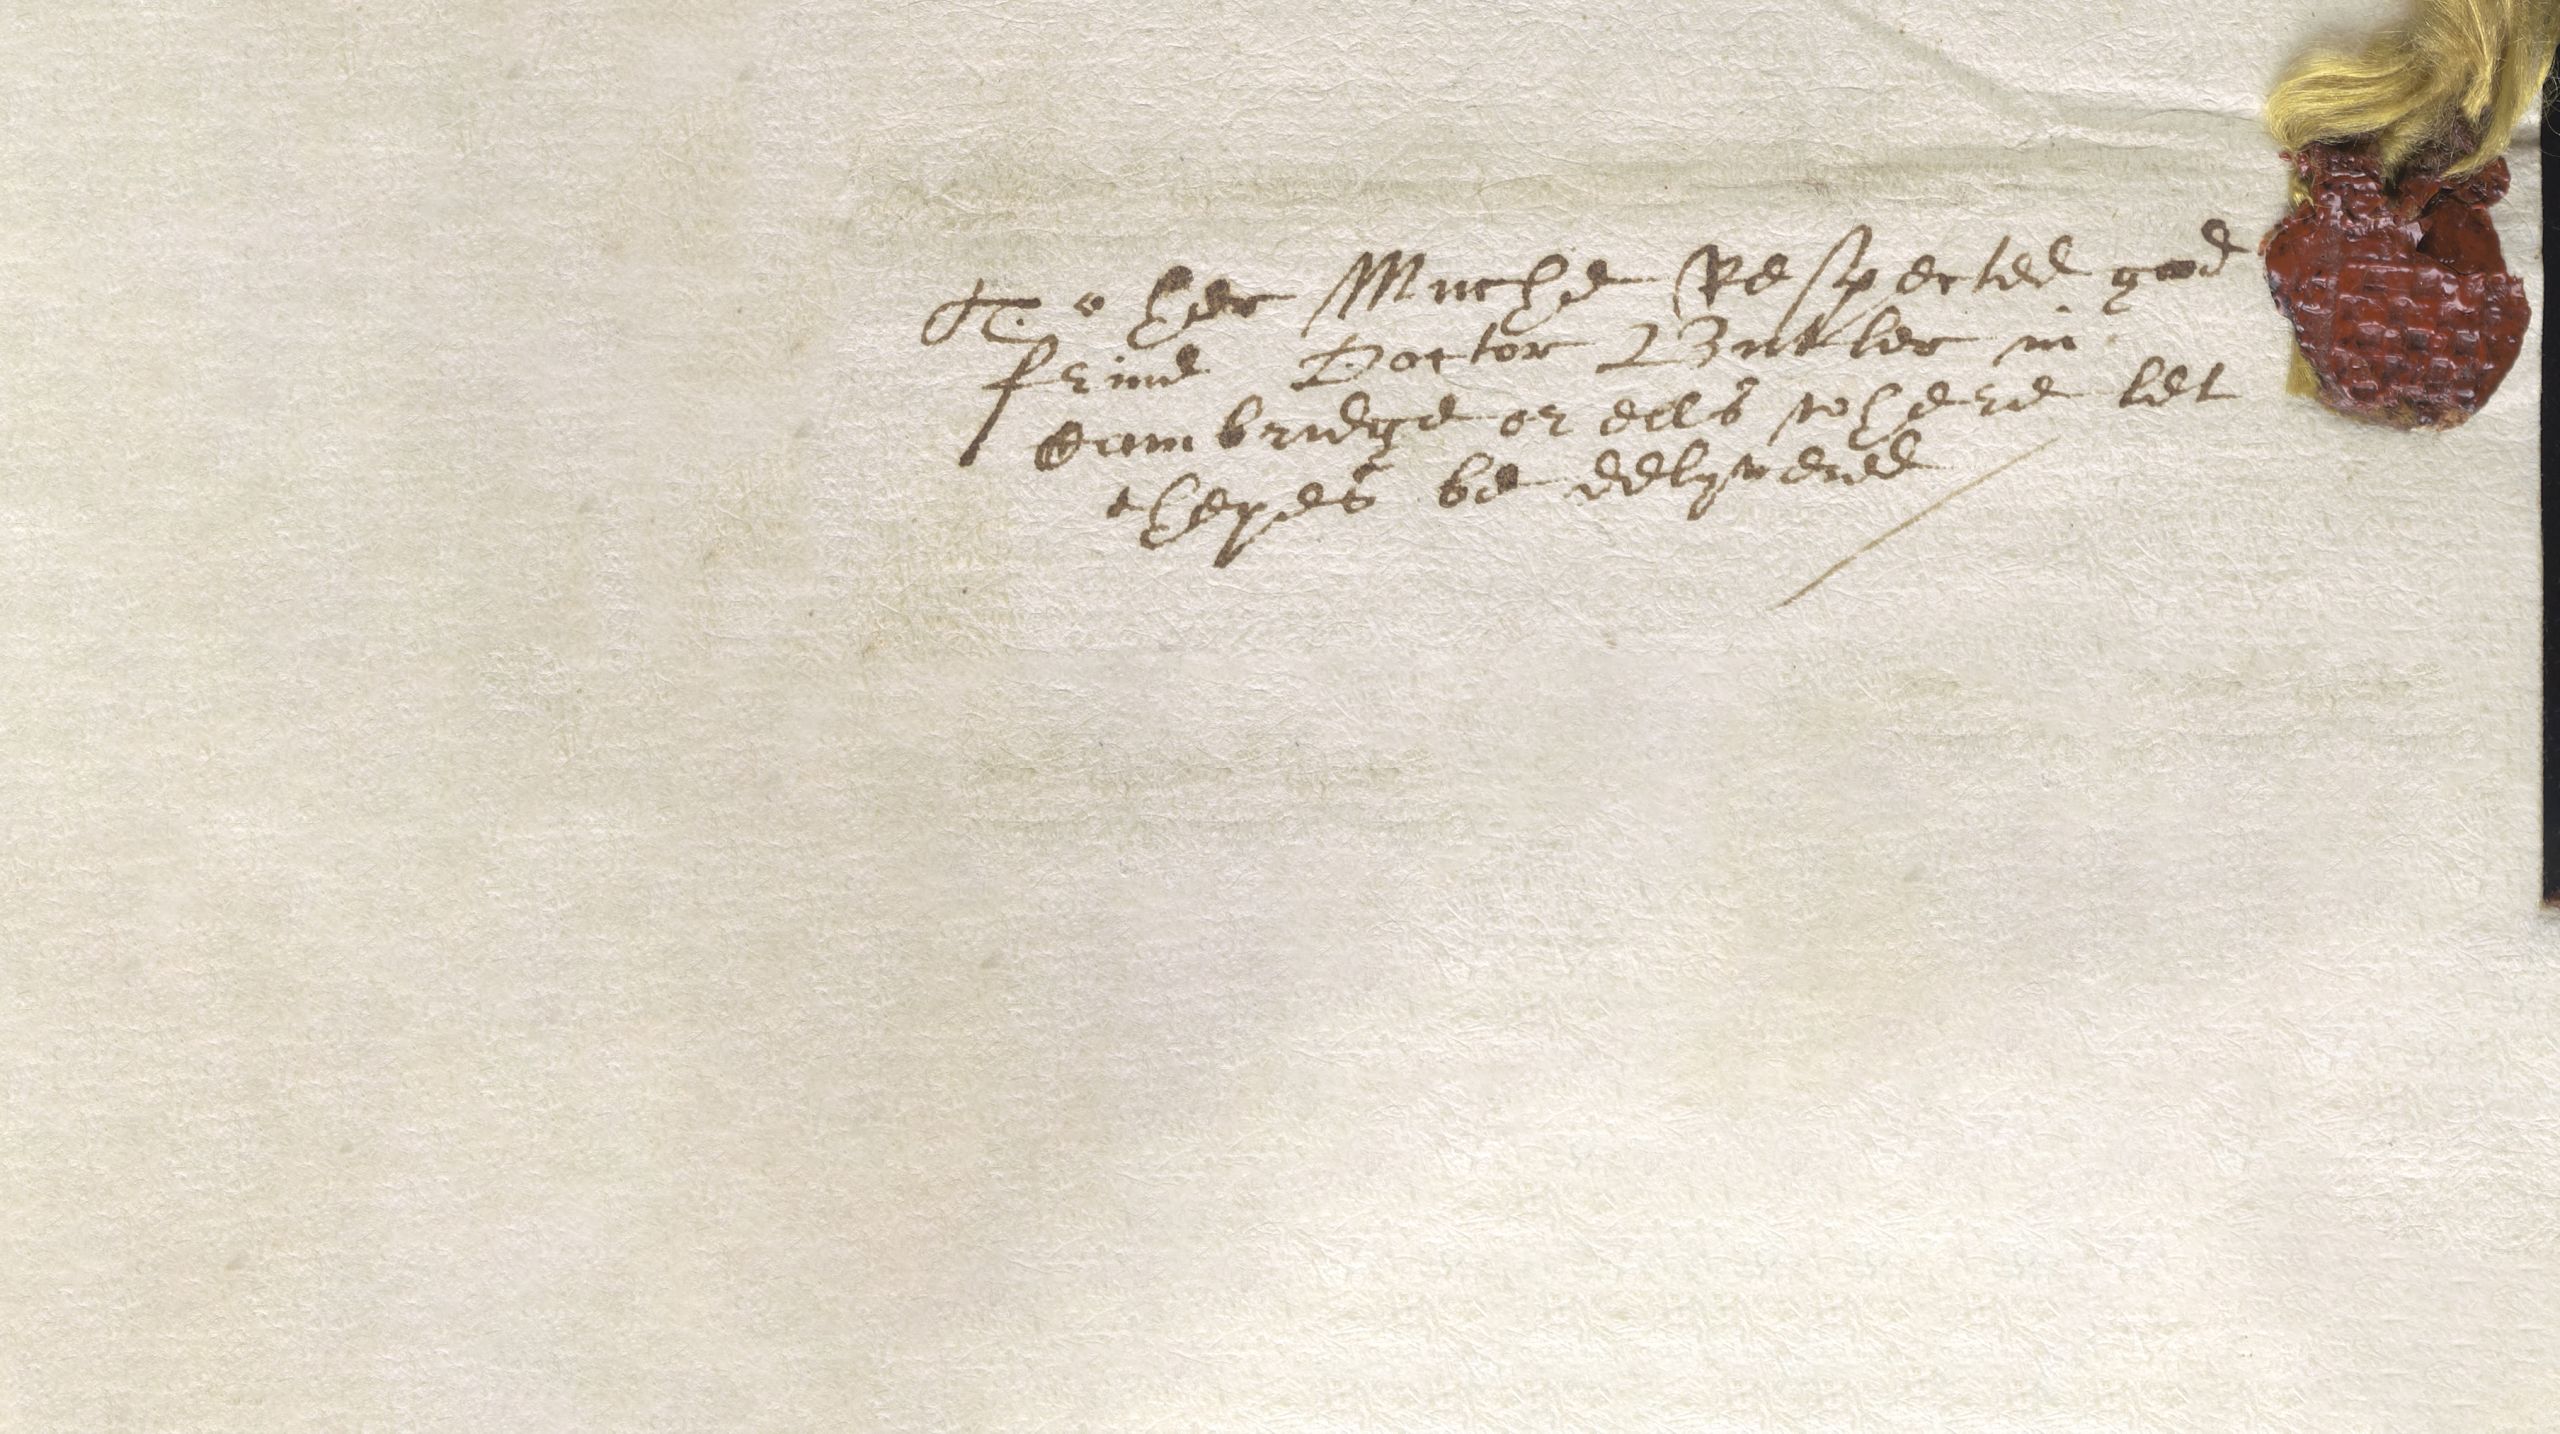 To her Muche Respected good
frind Doctor Buttler in
Cambridge or ells where let
theyes be delyvered